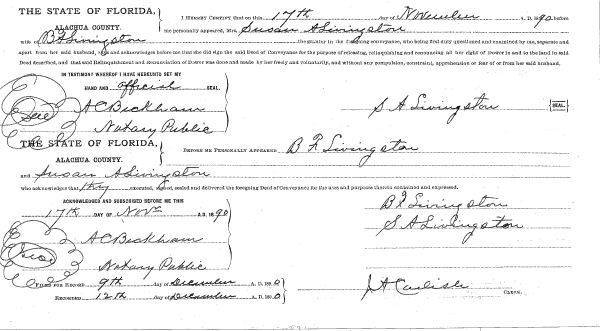 THE STATE OF FLORIDA,
ALACHUA COUNTY.
I HEREBY CERTIFY that on this 17th day of November A. D. 1890 before
me personally appeared, Mrs. Susan A Livingston
wife of B F Livingston the grantor in the foregoing conveyance, who being first duly questioned and examined by me, separate and
apart from her said husband, says and acknowledges before me that she did sign the said Deed of Conveyance for the purpose of releasing, relinquishing and renouncing all her right of Dower in and to the land in said
Deed described, and that said Relinquishment and Renunciation of Dower was done and made by her freely and voluntarily, and without any compulsion, constraint, apprehension or fear of or from her said husband.
IN TESTIMONY WHEREOF I HAVE HEREUNTO SET MY
HAND AND official SEAL,
Seal
A C Beckham
Notary Public
S A Livingston SEAL
THE STATE OF FLORIDA,
ALACHUA COUNTY.
BEFORE ME PERSONALLY APPEARED B F Livingston
and Susan A Livingston
who acknowledges that they executed, signed, sealed and delivered the foregoing Deed of Conveyance for the uses and purposes therein contained and expressed.
ACKNOWLEDGED AND SUBSCRIBED BEFORE ME THIS
17th DAY OF Novr A.D. 1890
B F Livingston
S A Livingston
A C Beckham
Seal
Notary Public
FILED FOR RECORD 9th day of December A. D. 1890
RECORDED 12th day of December A. D. 1890
J A Carlisle CLERK.